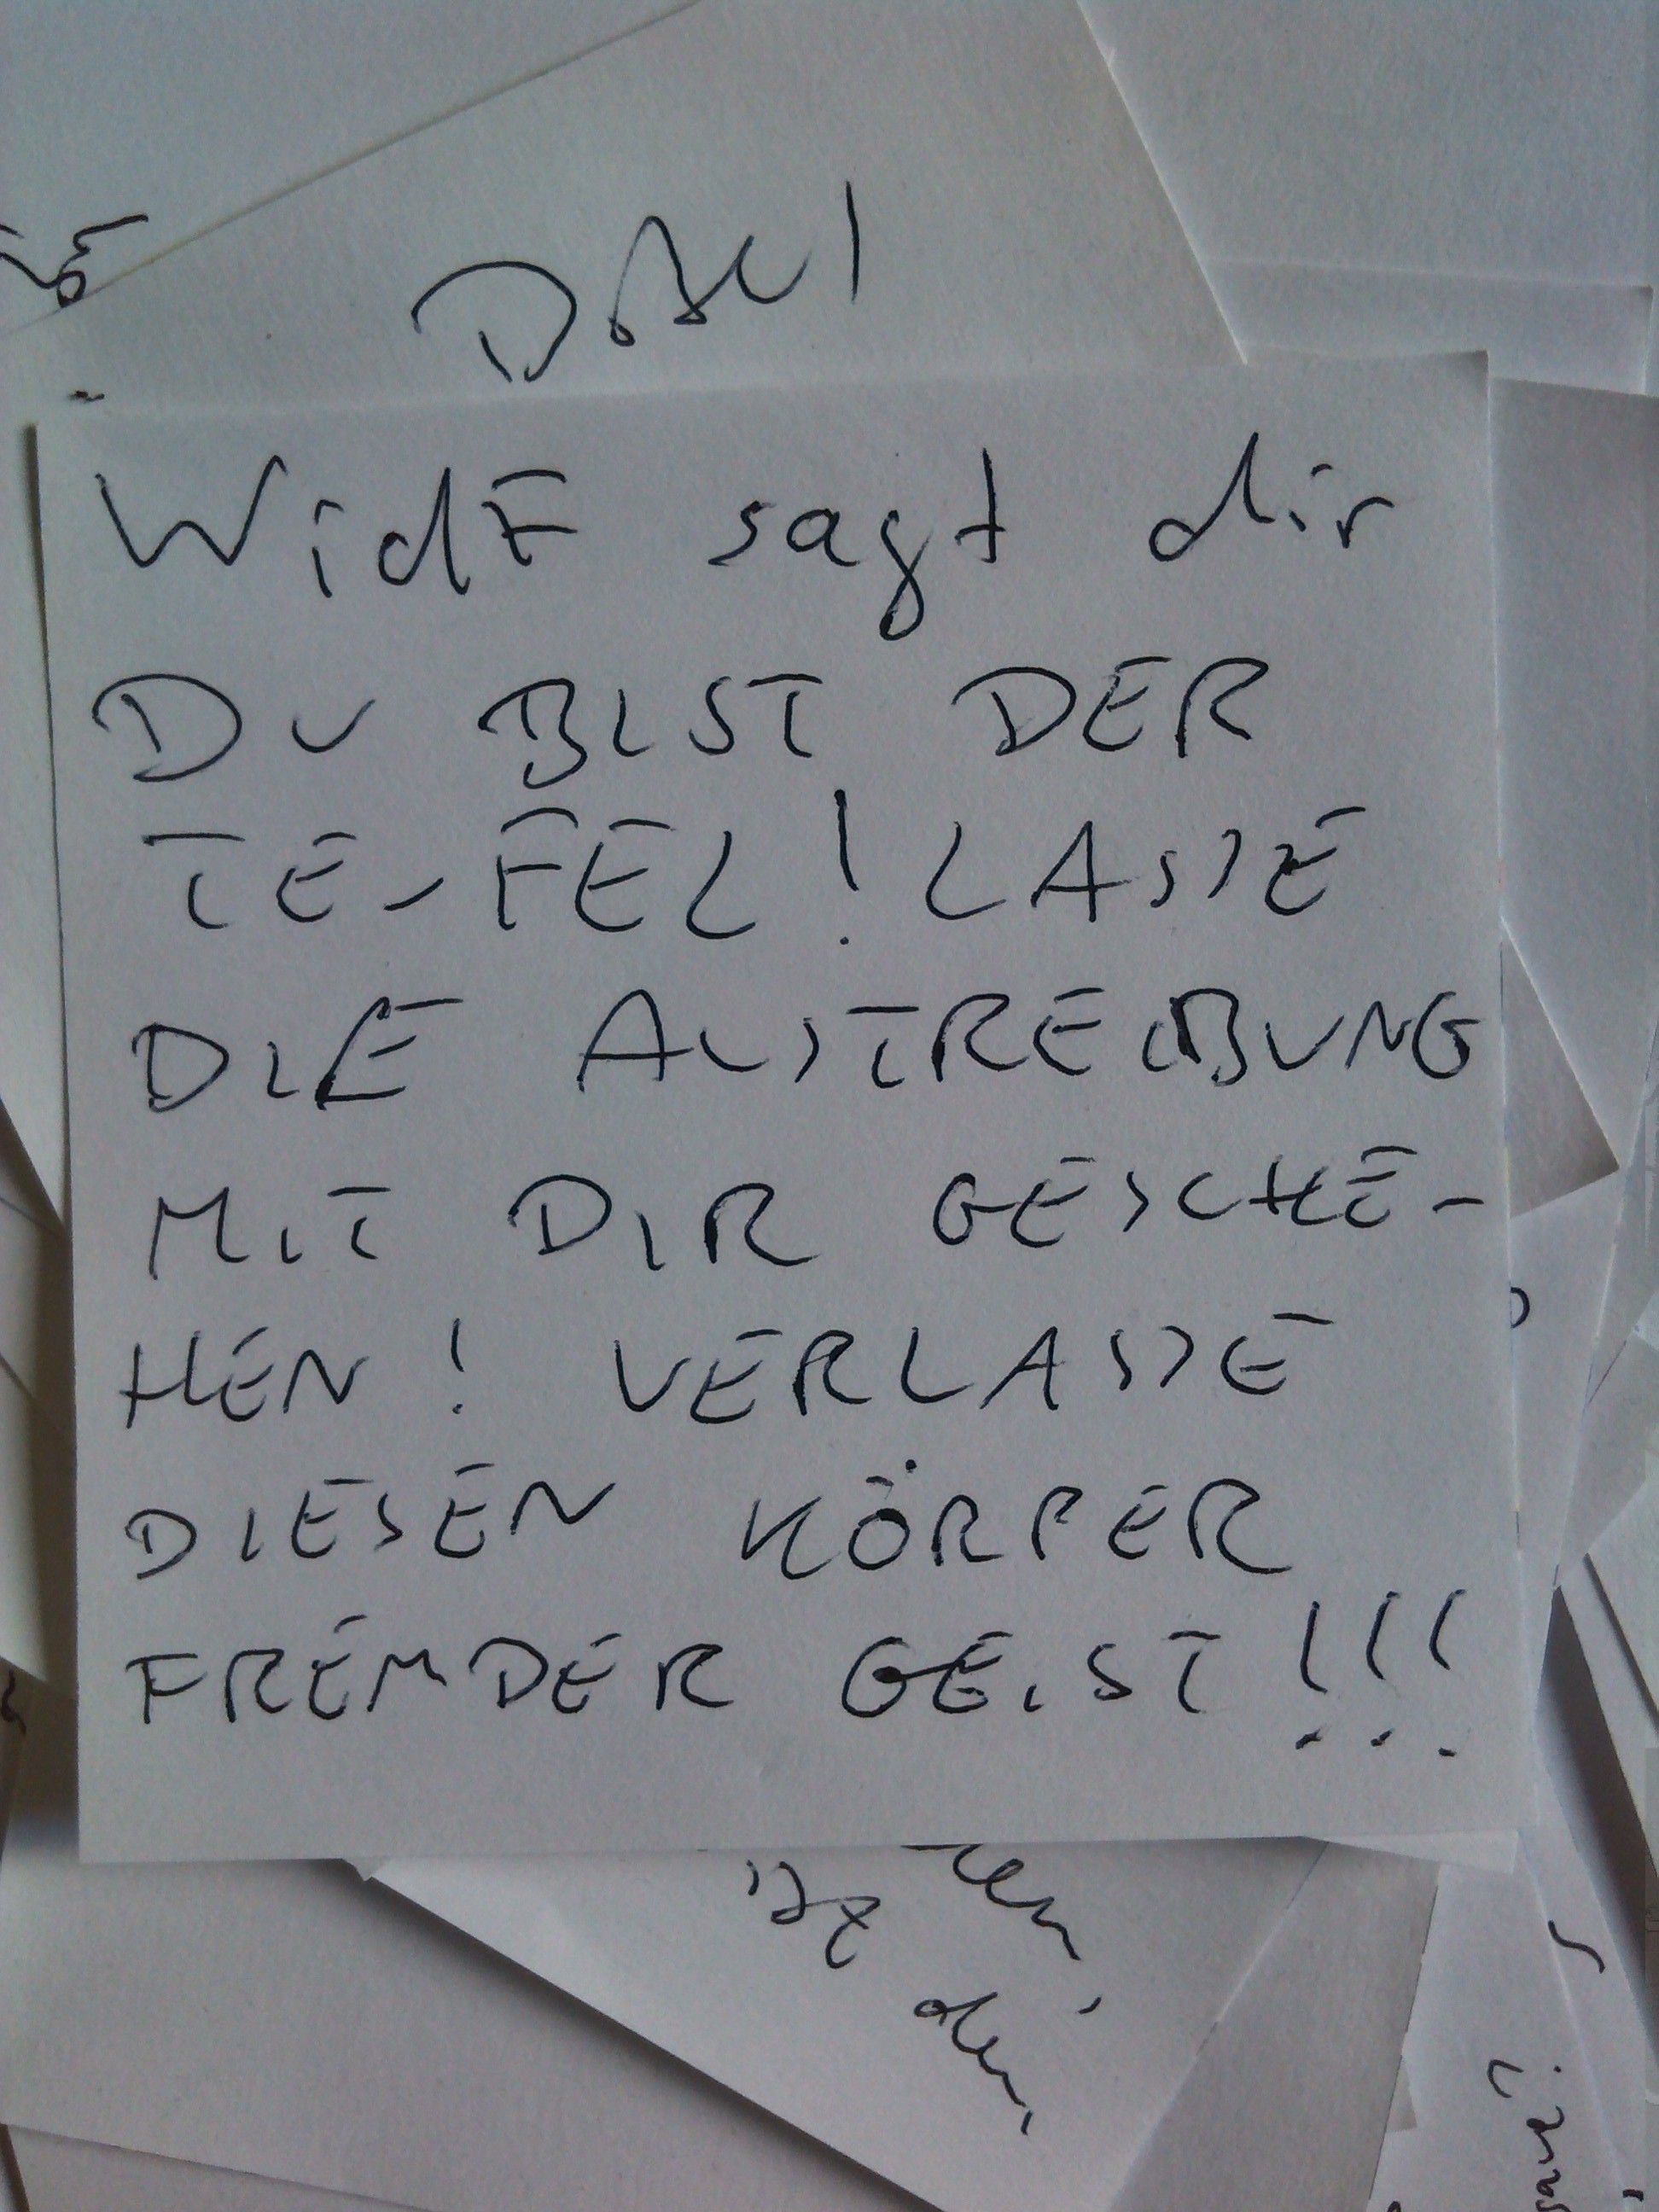 WidE sagt dir
DU BIST DER
TEUFEL! LASSE
DIE AUSTREIBUNG
MIT DIR GESCHE-
HEN! VERLASSE
DIESEN KÖRPER
FREMDER GEIST!!!